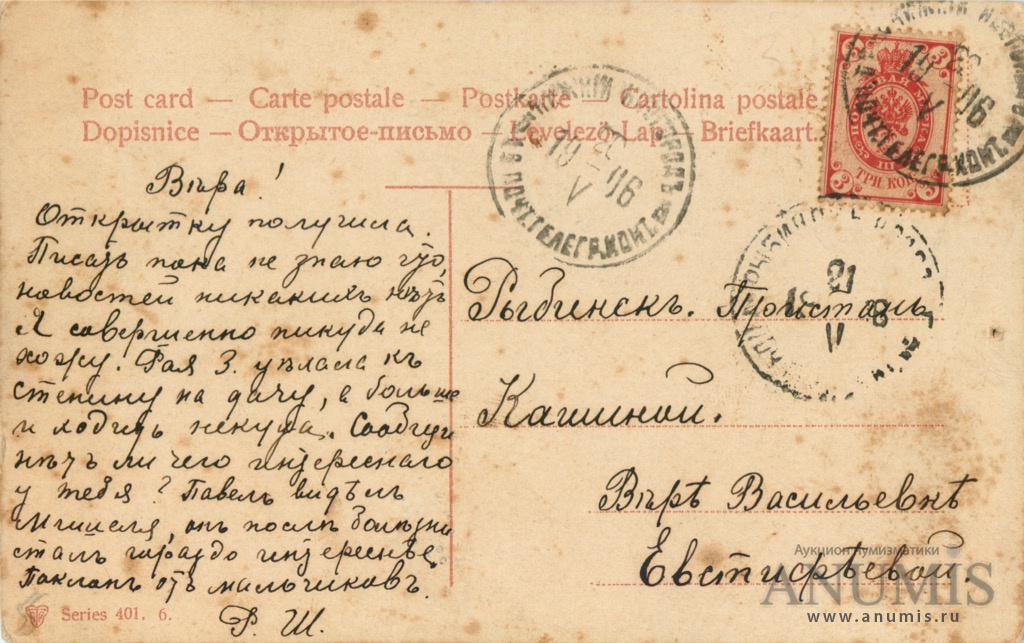 Post card — Carte postale — Postkarte — Cartolina postale
Dopisnice — Открытое-письмо — Levelező-Lap — Briefkaart.
Вѣра!
Открытку получила.
Писать пока не знаю что,
новостей никакихъ нѣтъ
Я совершенно никуда не
хожу. Рая З. уѣхала къ
на дачу, а больше
и ходить некуда. Сообщи
нѣтъ ли чего интереснаго
у тебя? Павелъ видѣлъ
онъ послѣ болѣзни
сталъ гораздо интереснѣе.
Поклонъ отъ мальчиковъ.
Р. Ш.
Рыбинскъ. Пристань
Кашиной.
Вѣрѣ Васильевнѣ
Евстифѣевой.
ТРИ КОП
3
3
19 V 06
ПОЧТ. ТЕЛЕГР. КОНТ.
19 V 06
ПОЧТ. ТЕЛЕГР. КОНТ.
21 V
Series 401. 6.
Аукцион нумизматики
ANUMIS
www.anumis.ru